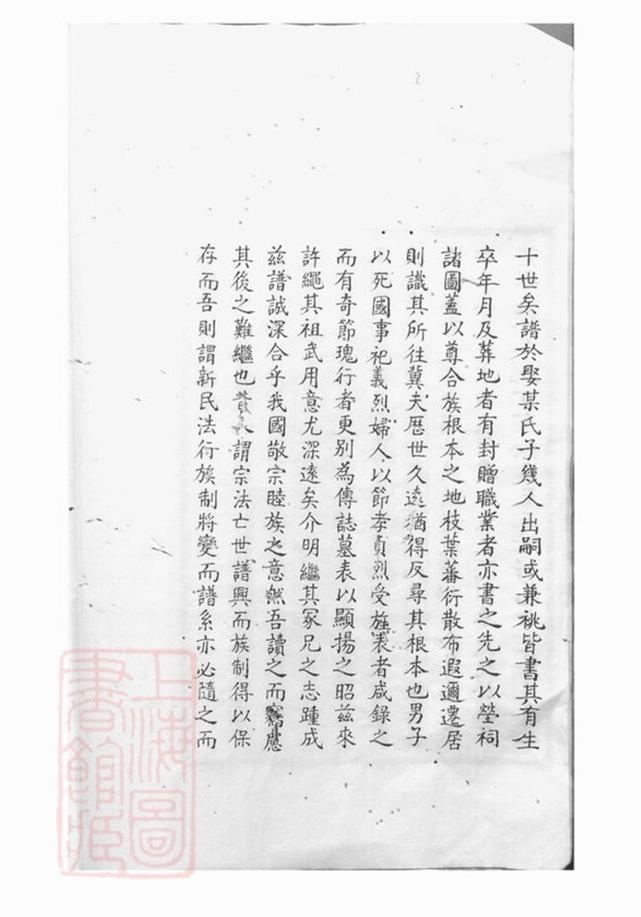 十世矣譜於娶某氏子幾人出嗣或兼祧皆書其有生
卒年月及葬地者有封贈職業者亦書之先之以塋祠
諸圖蓋以尊合族根本之地枝葉蕃衍散布遐邇遷居
則識其所往冀夫歷世久遠猶得反尋其根本也男子
以死國事祀義烈婦人以節孝貞烈受旌表者咸錄之
而有奇節瑰行者更別為傳誌墓表以顯揚之昭茲來
許繩其祖武用意尤深遠矣介明繼其冢兄之志踵成
茲譜誠深合乎我國敬宗睦族之意然吾讀之而竊慮
其後之難繼也昔人謂宗法亡世譜興而族制得以保
存而吾則謂新民法行族制將變而譜系亦必隨之而
上海圖
書館藏